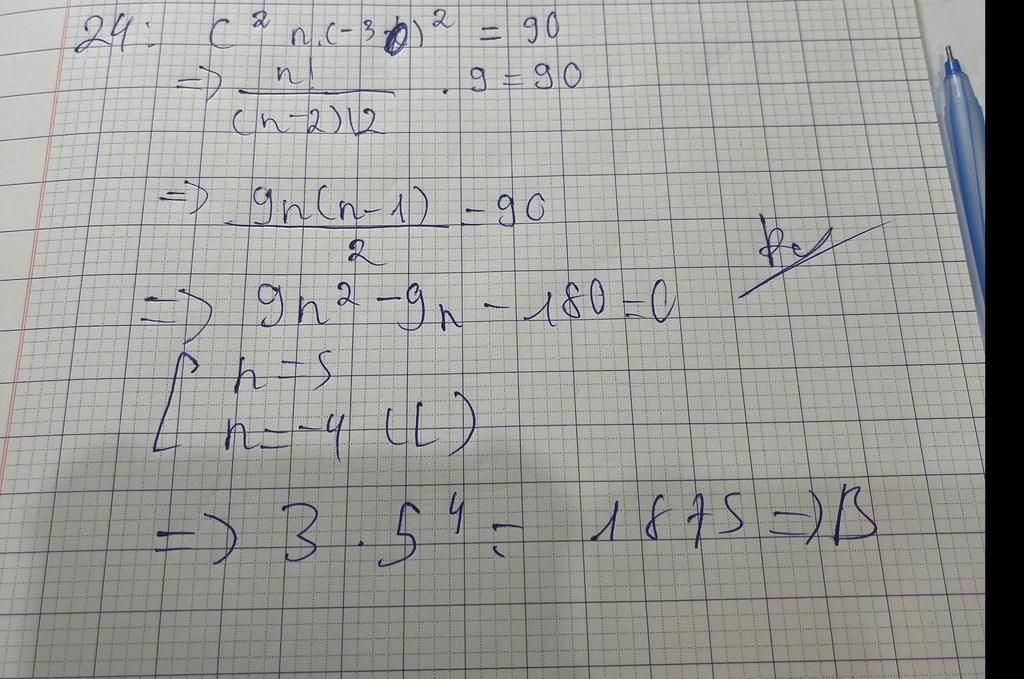 24: C² n.(-3)² = 90
=> n! / (n-2)!2 . 9 = 90
=> 9n(n-1) / 2 = 90
=> 9n² - 9n - 180 = 0
[ n = 5
n = -4 (L)
=> 3 . 5⁴ = 1875 => B